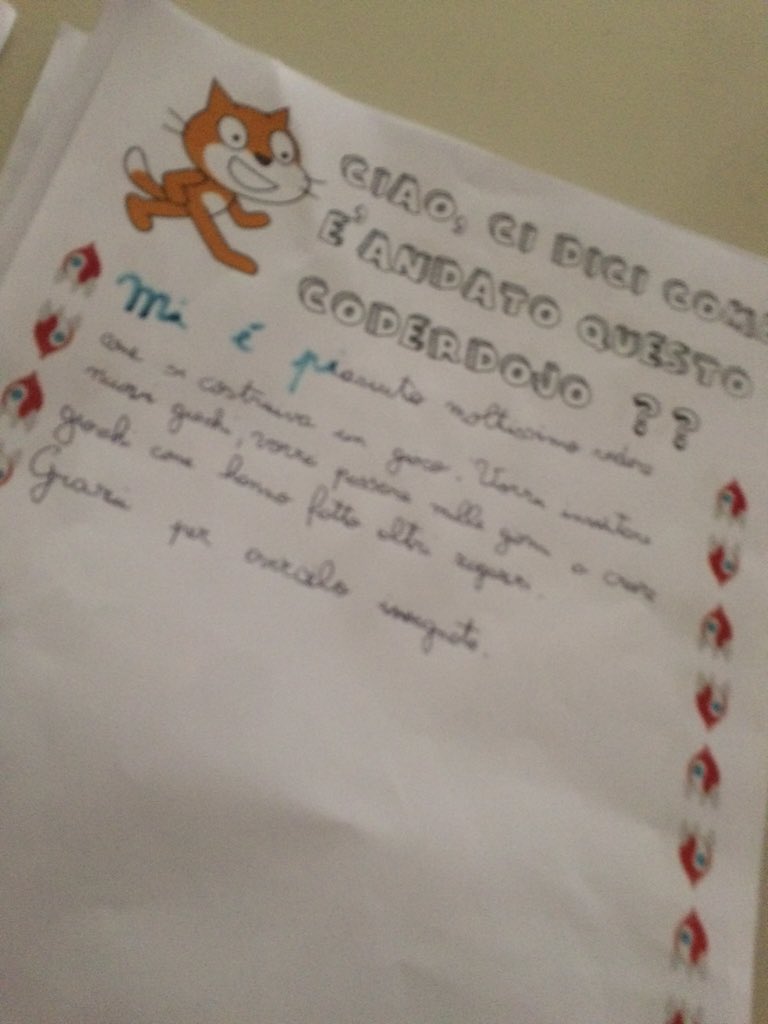 CIAO, CI DICI COME
E' ANDATO QUESTO
CODERDOJO ??
Mi è piaciuto moltissimo vedere
come si costruiva un gioco. Vorrei inventare
nuovi giochi, vorrei passare nelle o creare
giochi come hanno fatto altri ragazzi.
Grazie per avercelo insegnato.